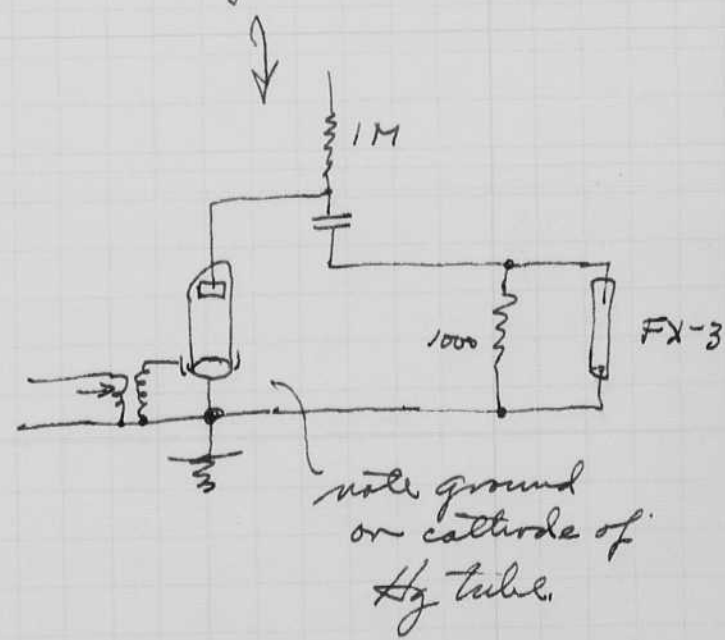 1M
1000
FX-3
note ground
on cathode of
Hg tube.